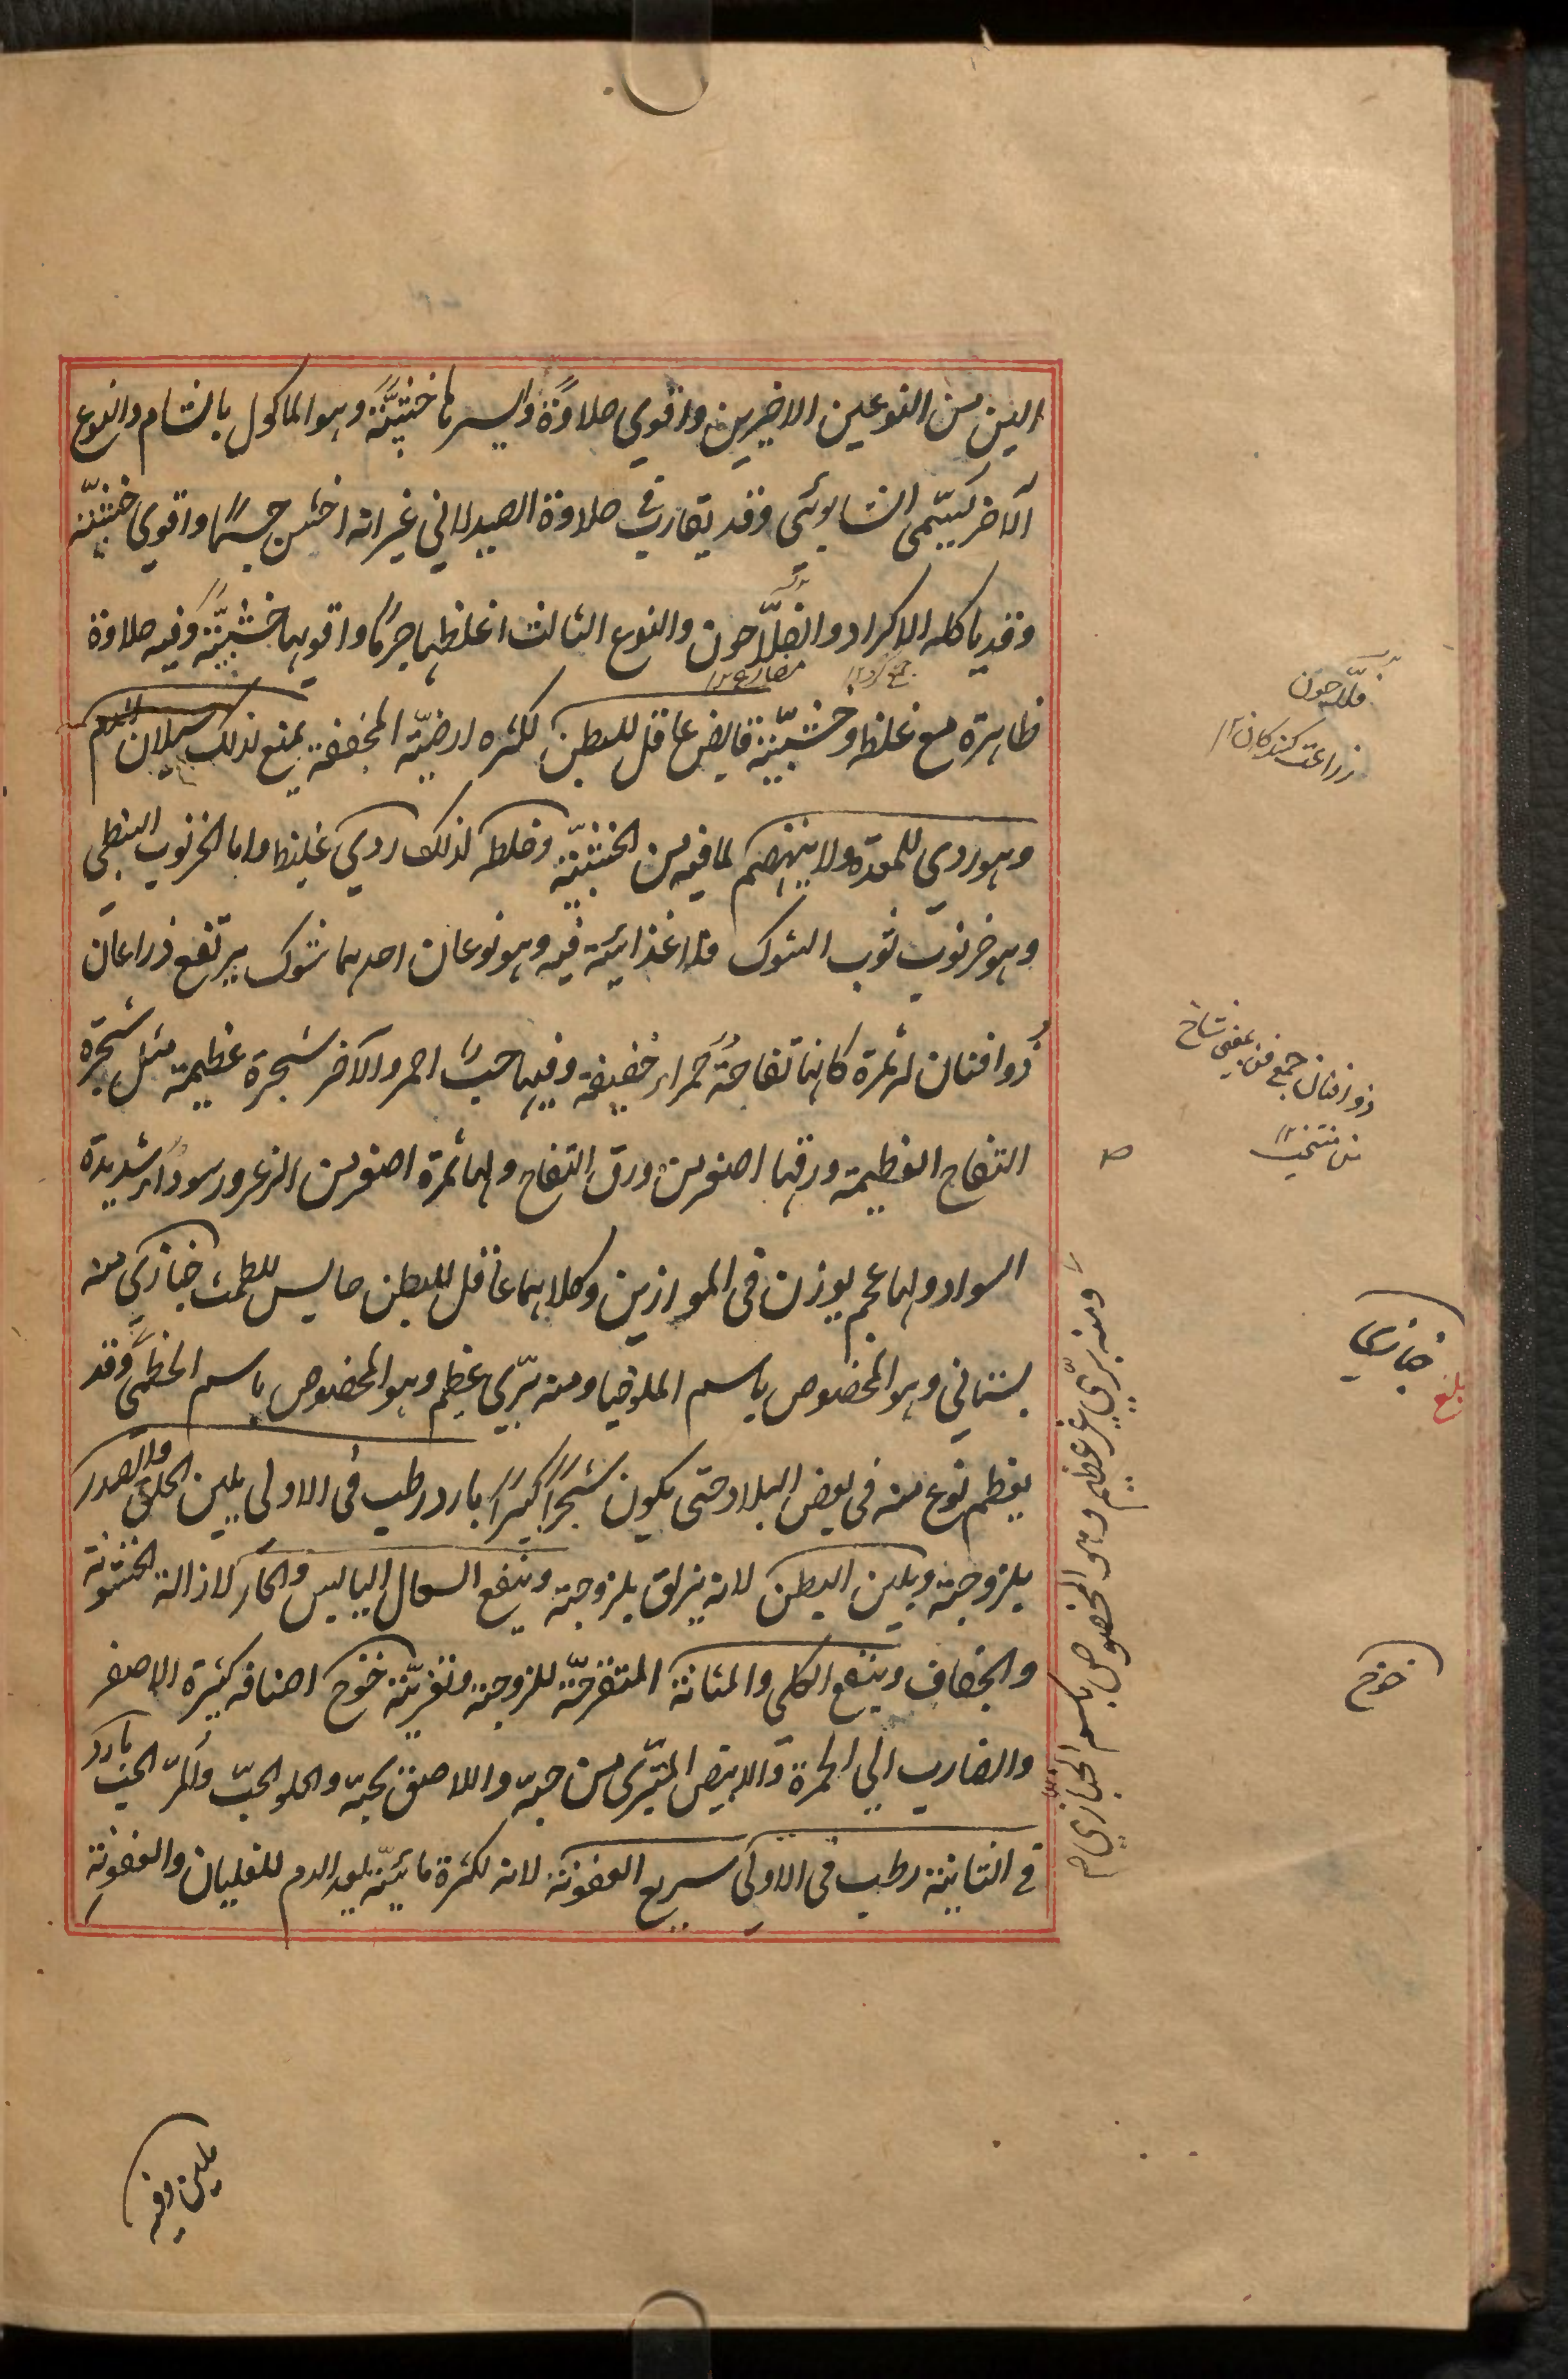 الين من النوعين الاخيرين واقوى حلاوة وايسرها خشبيّة وهو الماكول بالشام والنوع
الآخر يسمّى الشابوئى وقد يقارب فى حلاوة الصيدلانى غير انه اخشن جسمًا واقوى خشبيّة
وقد ياكله الاكراد والفلّاحون والنوع الثالث اغلظها جرمًا واقويها خشبيّة وفيه حلاوة
ظاهرة مع غلظ وخشبيّة قابض عاقل للبطن لكثره ارضيّة المجففة يمنع لذلك سيلان الدم
وهو ردى للمعدة ولا ينهضم لما فيه من الخشبيّة وخلطه لذلك ردى غليظ واما الخرنوب النبطى
وهو خرنوب ثوب الشوك فلا غذائية فيه وهو نوعان احدهما شوك يرتفع ذراعان
ذو افنان له ثمرة كانها تفاحة حمراء خفيفة وفيها حبّ احمر والآخر شجرة عظيمة مثل شجرة
التفاح العظيمة ورقها اصغر من ورق التفاح ولها ثمرة اصغر من الزعرور سوداء شديدة
السواد ولها عجم يوزن فى الموازين وكلاهما عاقل للبطن حابس للطمث خبازى منه
بستانى وهو المخصوص باسم الملوخيا ومنه برّى عظيم وهو المخصوص باسم الخطمى وقد
يعظم نوع منه فى بعض البلاد حتى يكون شجرًا كبيرًا بارد رطب فى الاولى يلين الحلق والصدر
بلزوجته ويلين البطن لانه يزلق بلزوجته وينفع السعال اليابس والحار لازالة الخشونة
والجفاف وينفع الكلى والمثانة المتقرحة للزوجة وتغريّته خوخ اصنافه كثيرة الاصفر
والضارب الى الحمرة والابيض المتبرّى من حبه واللاصق بحبه والحلو الحبّ والمرّ الحبّ بارد
فى الثانية رطب فى الاولى سريع العفونة لانه لكثرة مائيّة يعد الدم للغليان والعفونة
جمع كرد ١٢
فلّاحون
زراعت كنندكان ١٢
ذو افنان جمع فنن يعنى شاخ
من منتخب
ومنه برّى غير عظيم وهو المخصوص باسم الخبازى
خبازى
بلغ
خوخ
يلين وفيه